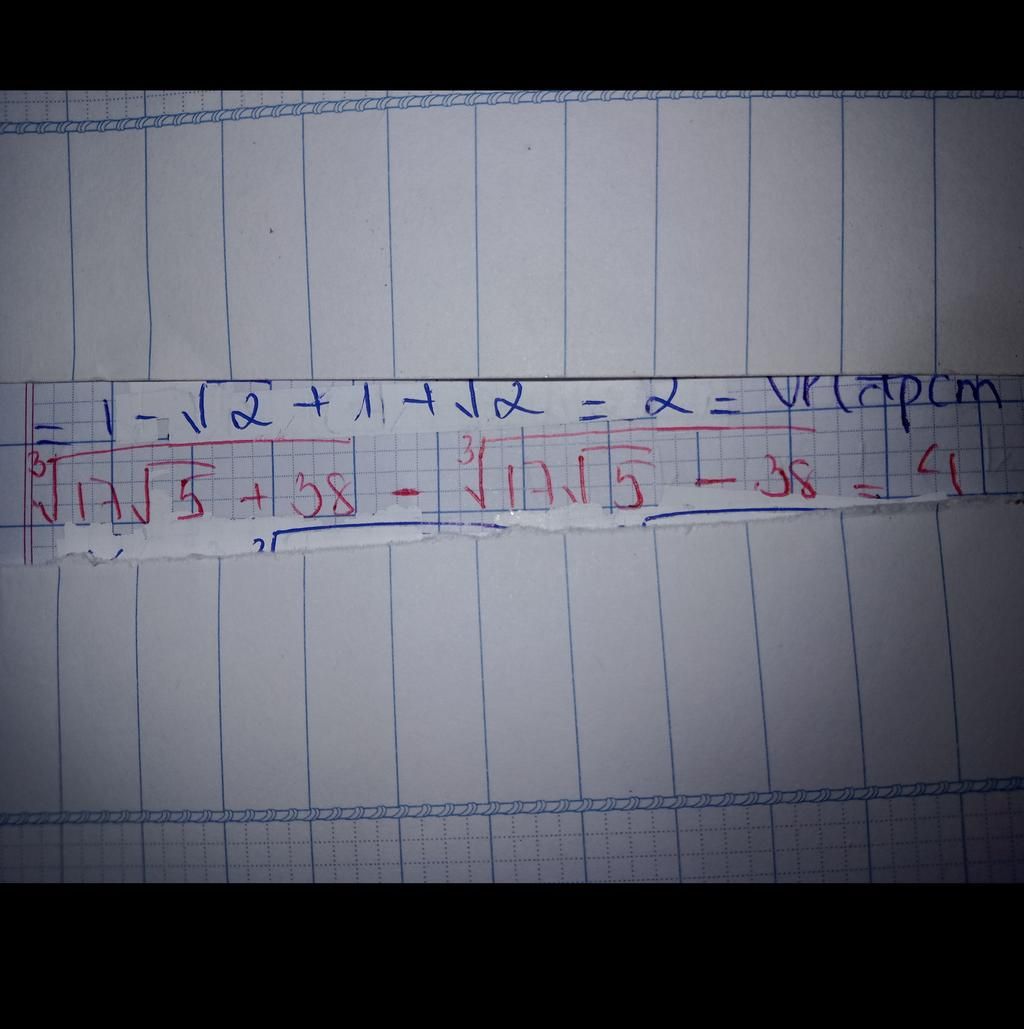 = 1 - √2 + 1 + √2 = 2 = VP(đpcm
∛(17√5 + 38) - ∛(17√5 - 38) = 4